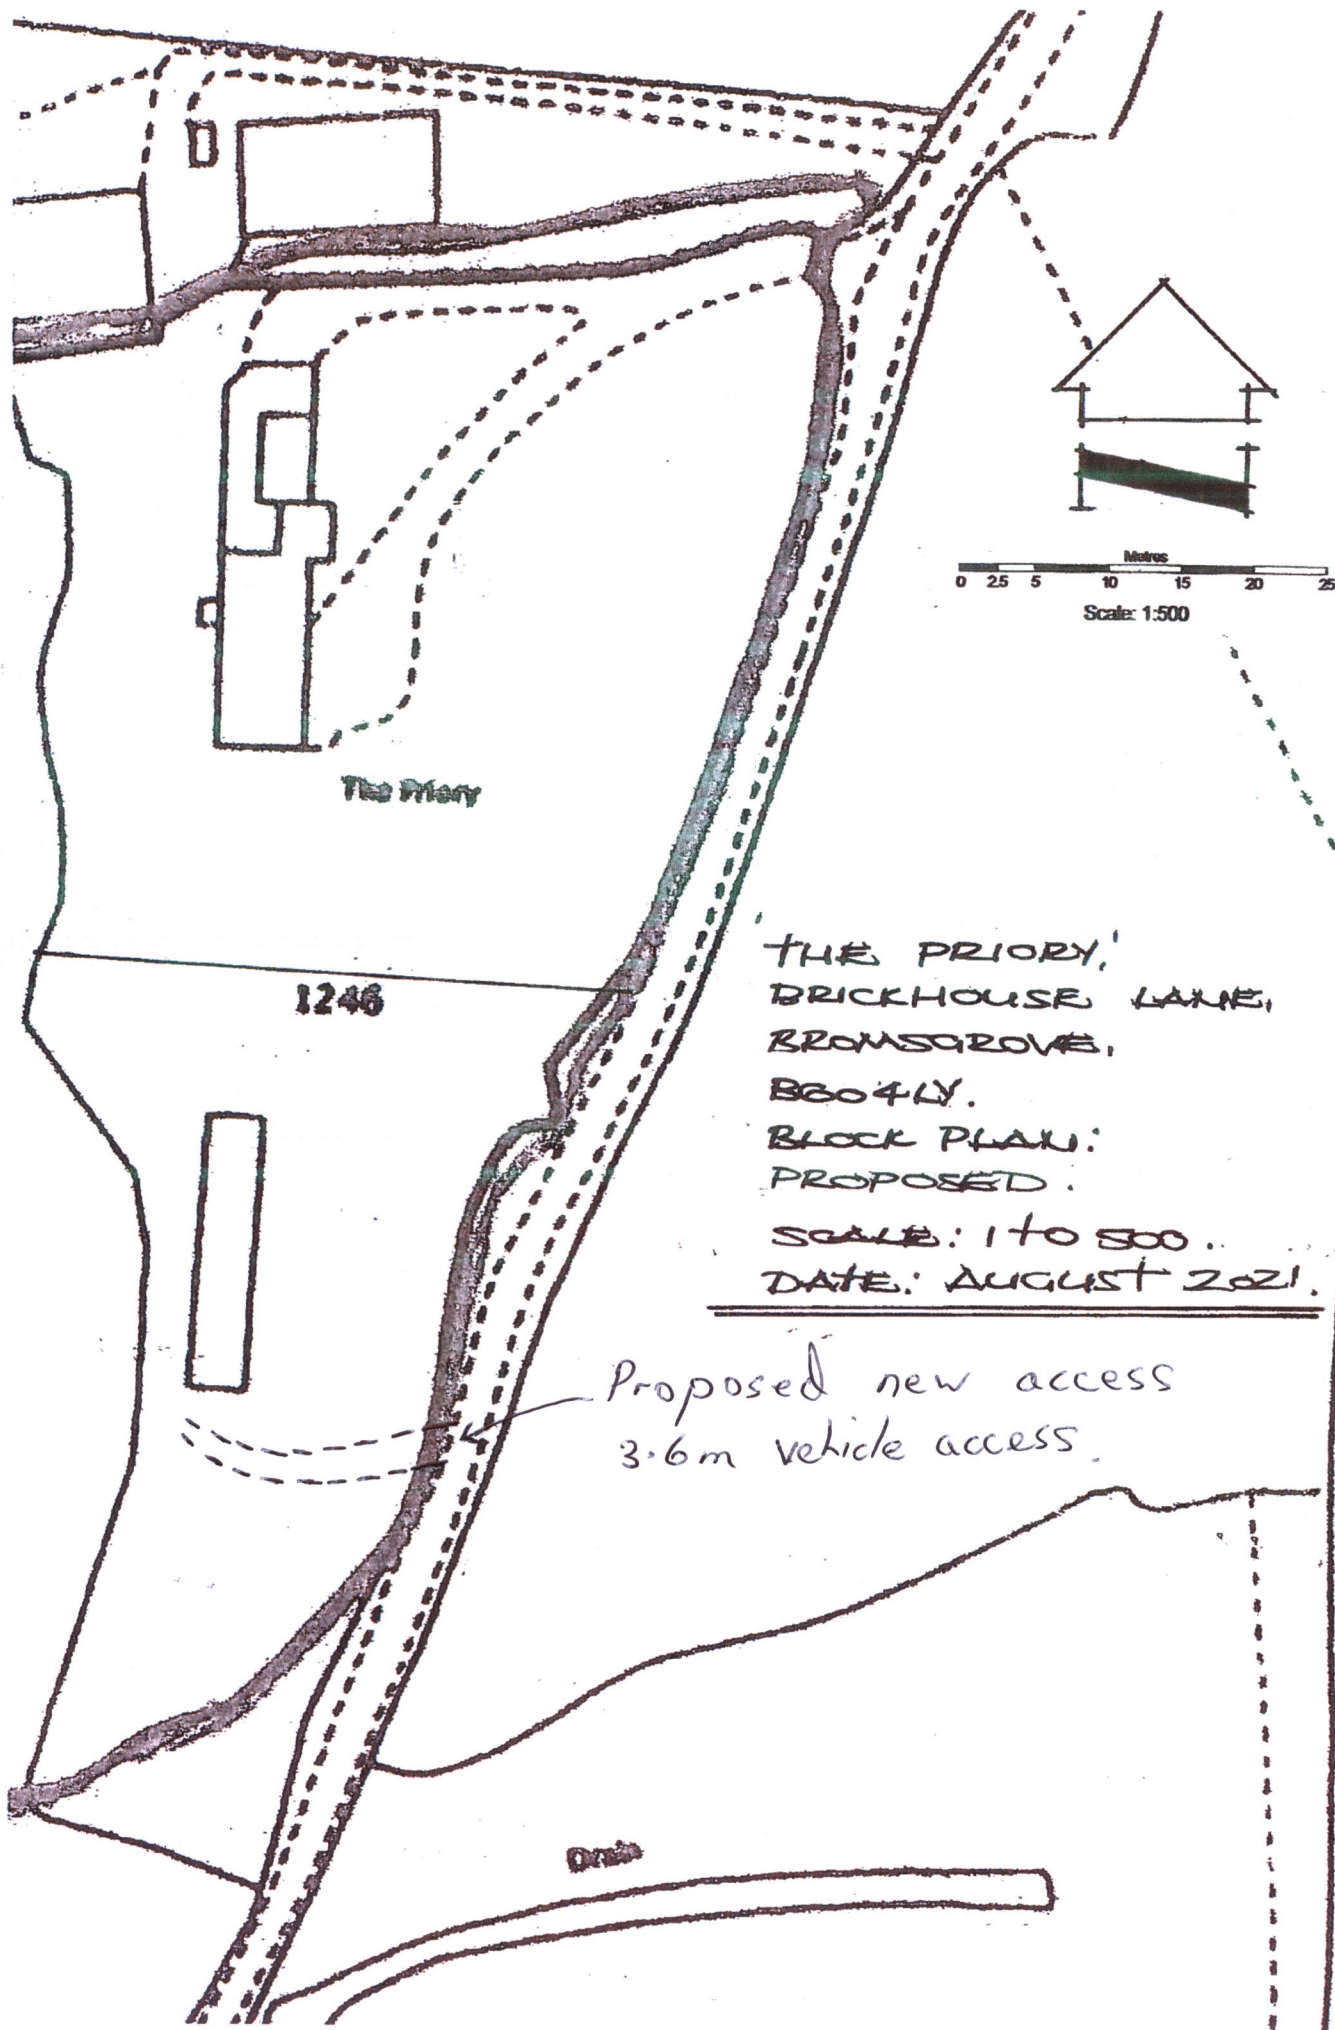 Metres
0 2.5 5 10 15 20 25
Scale: 1:500
The Priory
1246
'THE PRIORY,'
BRICKHOUSE LANE,
BROMSGROVE,
B60 4LY.
BLOCK PLAN:
PROPOSED.
SCALE: 1 TO 500.
DATE: AUGUST 2021.
Proposed new access
3.6m vehicle access.
Drain